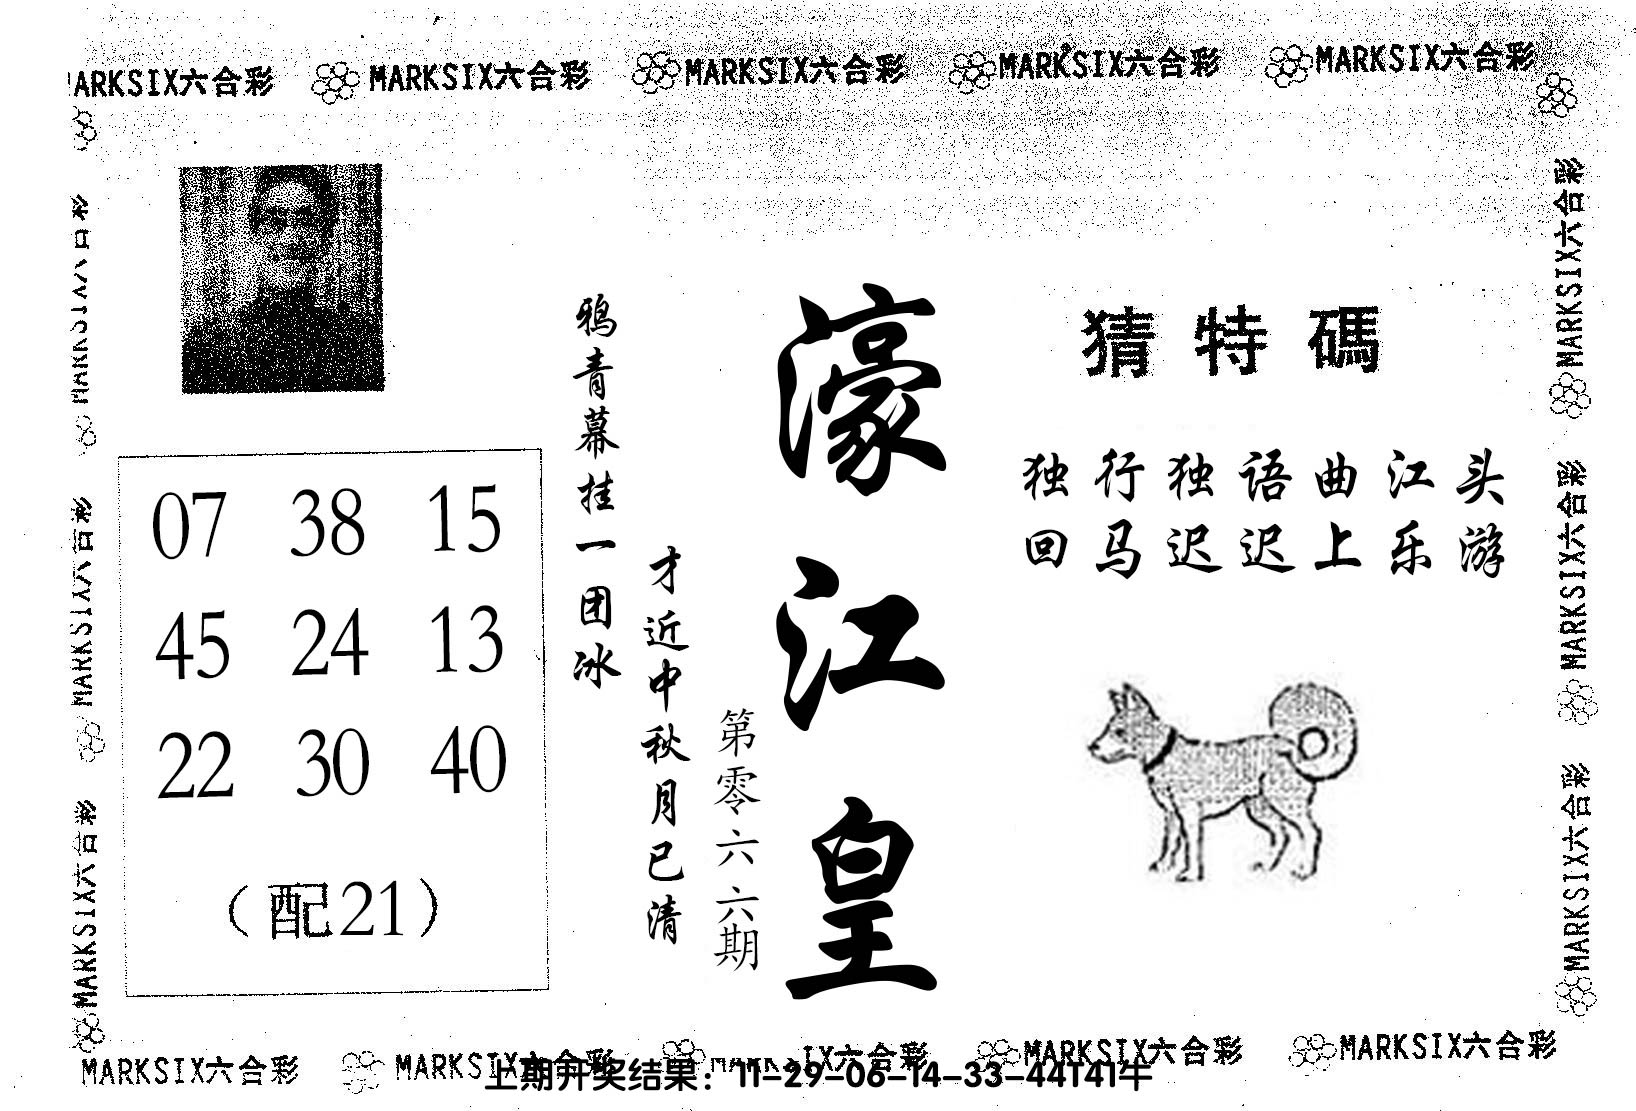 MARKSIX六合彩 MARKSIX六合彩 MARKSIX六合彩 MARKSIX六合彩
猜特碼
独行独语曲江头
回马迟迟上乐游
濠江皇
第零六六期
鸦青幕挂一团冰
才近中秋月已清
07 38 15
45 24 13
22 30 40
（配21）
MARKSIX六合彩
MARKSIX六合彩
MARKSIX六合彩
MARKSIX六合彩
MARKSIX六合彩
MARKSIX六合彩 MARKSIX六合彩 MARKSIX六合彩 MARKSIX六合彩
上期开奖结果：11-29-06-14-33-44T41牛